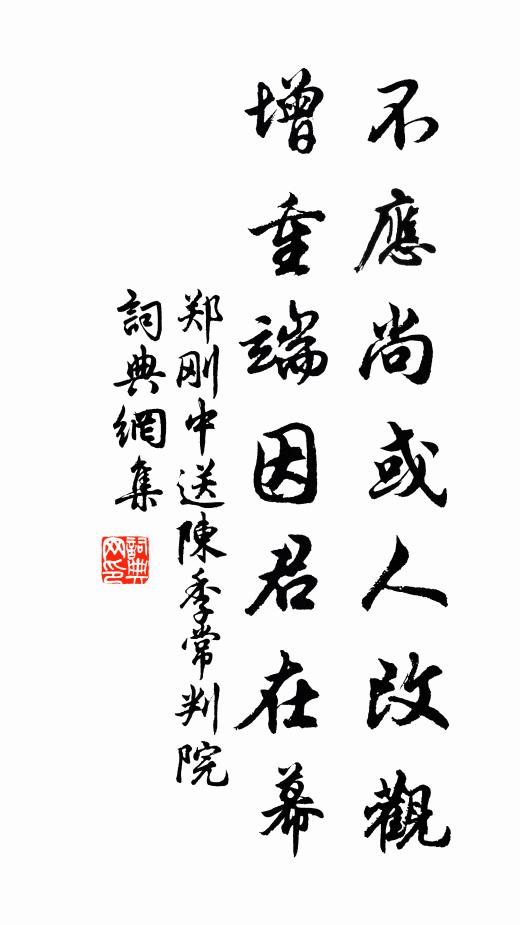 不應尚或人改觀
增重端因君在幕
郑刚中送陳季常判院
詞典網集
詞典網印